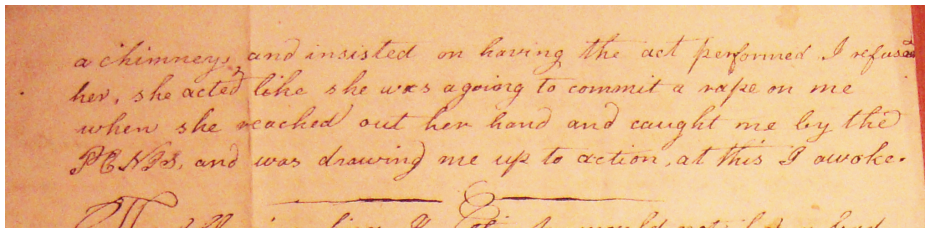 a chimney, and insisted on having the act performed I refused
her, she acted like she was agoing to commit a rape on me
when she reached out her hand and caught me by the
PENIS, and was drawing me up to action, at this I awoke.
would not